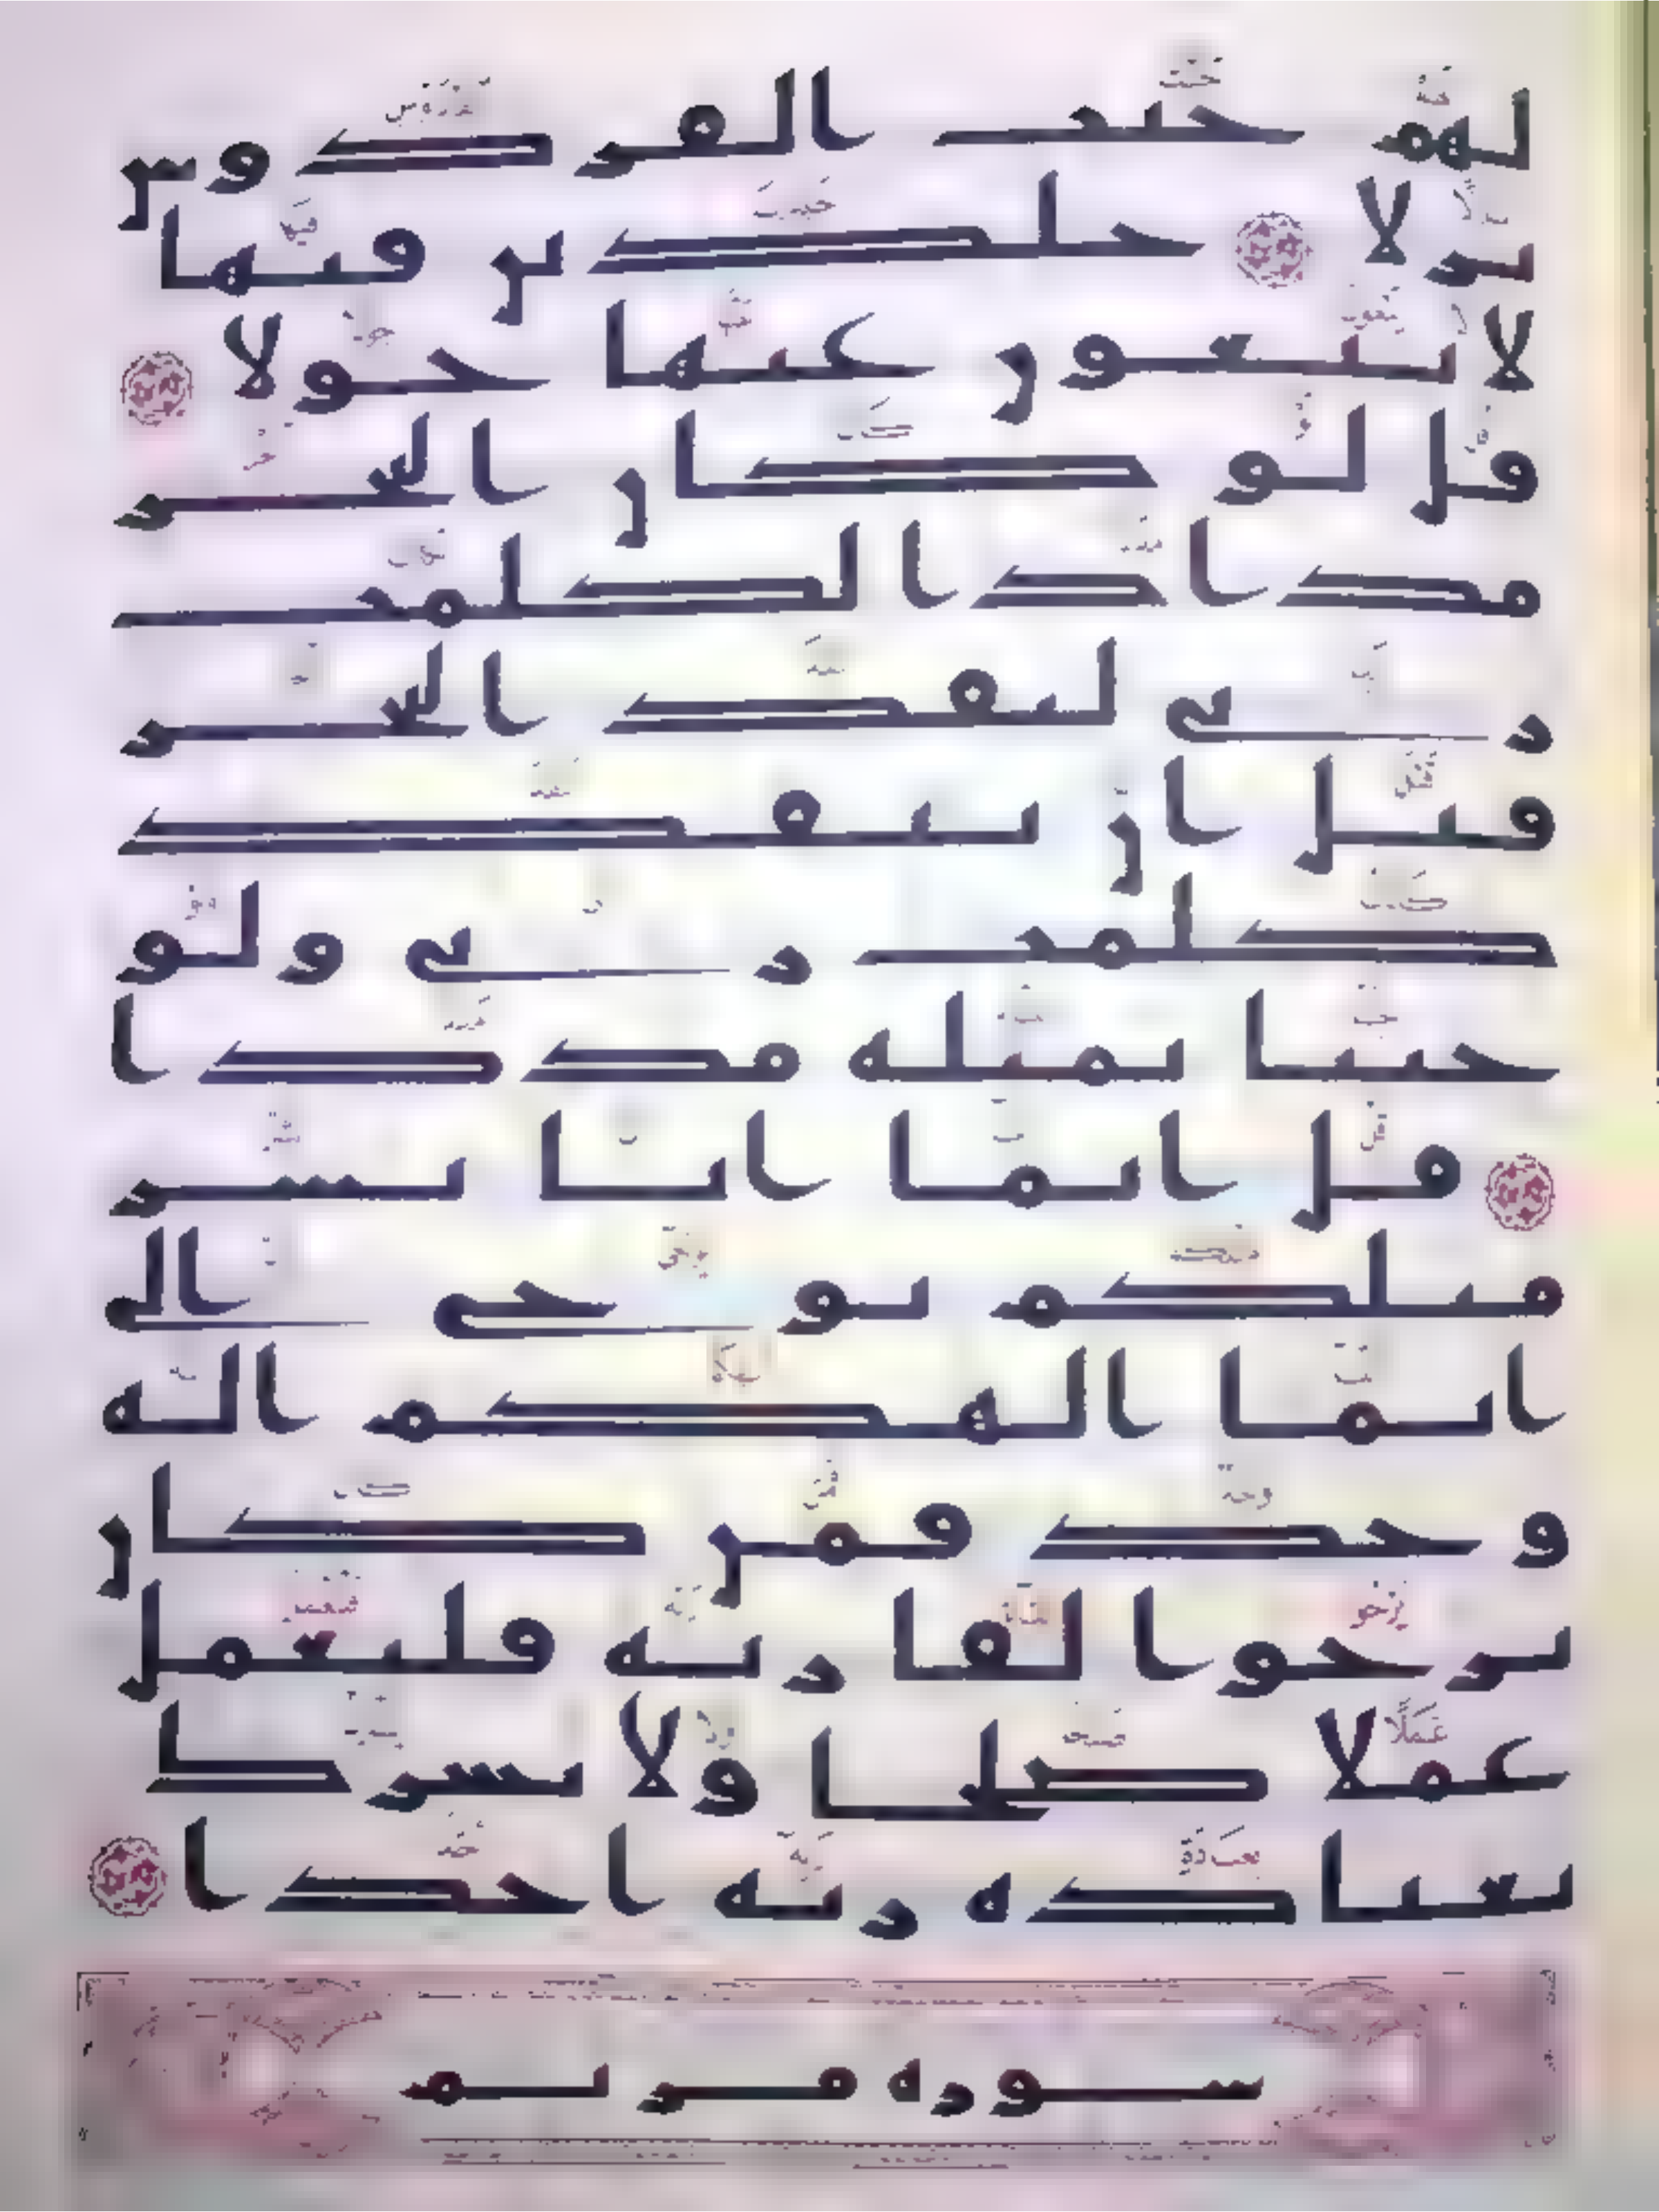 لهم جنت الفردوس
نزلا خلدين فيها
لا يبغون عنها حولا
قل لو كان البحر
مدادا لكلمت
ربي لنفد البحر
قبل ان تنفد
كلمت ربي ولو
جئنا بمثله مددا
قل انما انا بشر
مثلكم يوحى الى
انما الهكم اله
وحد فمن كان
يرجوا لقا ربه فليعمل
عملا صلحا ولا يشرك
بعبادة ربه احدا
سورة مريم